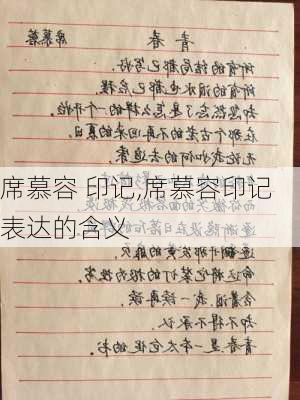 青春 席慕蓉
所有的结局都已写好,
所有的泪水也已启程
却忽然忘了是怎么样的一个开始,
在那个古老的不再回来的夏日
无论我如何的去追索
席慕容 印记,席慕容印记
表达的含义
命运将它装订的极为拙劣,
含着泪,我一读再读,
却不得不承认,
青春是一本太仓促的书.